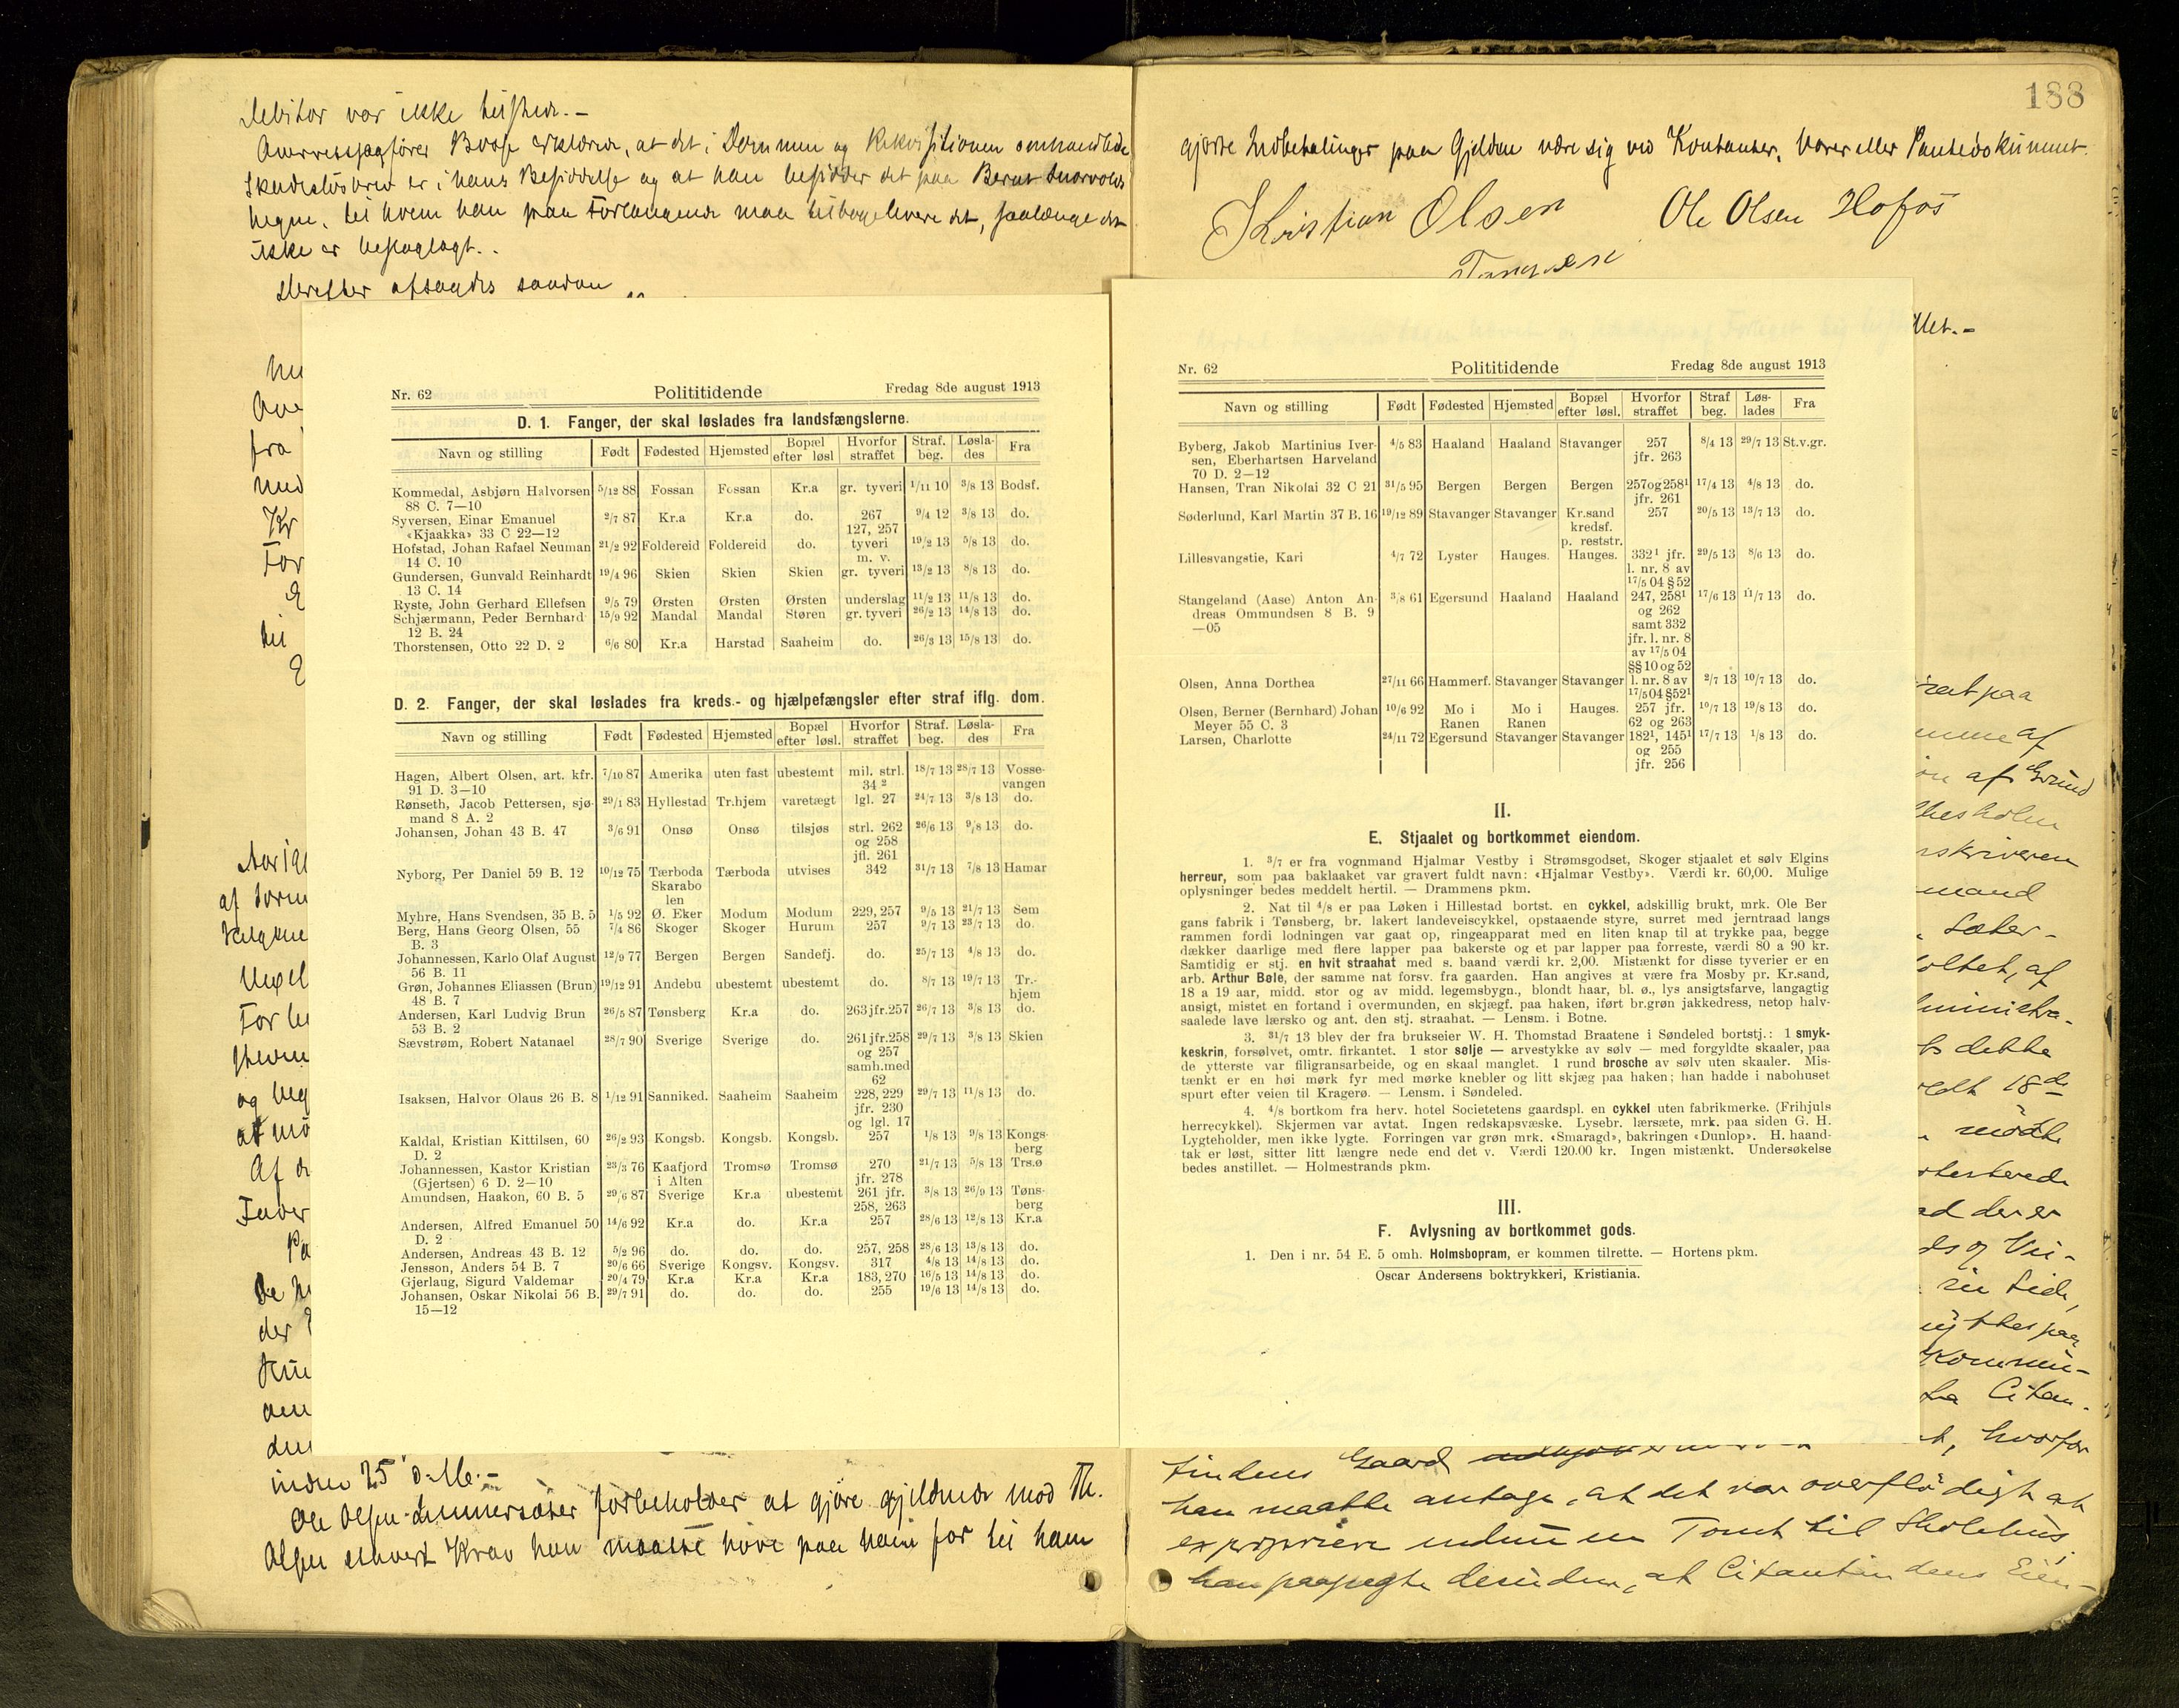 Debitor var ikke tilstede.-
Overretssagfører Boose erklærede, at det i Dommen og Rekvisitionen omhandlede
Skadesløsbrev er i hans Besiddelse og at han besidder det paa Bernt
hegne, til hvem han paa Forlangende maa tilbagelevere det, saalænge det
ikke er beslaglagt..
Derefter afsagdes saadan
inden 25 d. Me.-
Ole Olsen forbeholder at gjøre gjeldende mod Th.
Olsen ethvert Krav han maatte have paa ham for til ham
Nr. 62 Polititidende Fredag 8de august 1913
D. 1. Fanger, der skal løslades fra landsfængslerne.
Navn og stilling Født Fødested Hjemsted Bopæl efter løsl Hvorfor straffet Straf. beg. Løslades Fra
Kommedal, Asbjørn Halvorsen 5/12 88 Fossan Fossan Kr.a gr. tyveri 1/11 10 3/8 13 Bodsf.
88 C. 7—10
Syversen, Einar Emanuel 2/7 87 Kr.a Kr.a do. 267 9/4 12 3/8 13 do.
«Kjaakka» 33 C 22—12 127, 257
Hofstad, Johan Rafael Neuman 21/2 92 Foldereid Foldereid do. tyveri 19/2 13 5/8 13 do.
14 C. 10 m. v.
Gundersen, Gunvald Reinhardt 19/4 96 Skien Skien Skien gr. tyveri 13/2 13 8/8 13 do.
13 C. 14
Ryste, John Gerhard Ellefsen 9/5 79 Ørsten Ørsten Ørsten underslag 11/2 13 11/8 13 do.
Schjærmann, Peder Bernhard 15/9 92 Mandal Mandal Støren gr. tyveri 26/2 13 14/8 13 do.
12 B. 24
Thorstensen, Otto 22 D. 2 6/6 80 Kr.a Harstad Saaheim do. 26/3 13 15/8 13 do.
D. 2. Fanger, der skal løslades fra kreds- og hjælpefængsler efter straf iflg. dom.
Navn og stilling Født Fødested Hjemsted Bopæl efter løsl. Hvorfor straffet Straf. beg. Løslades Fra
Hagen, Albert Olsen, art. kfr. 7/10 87 Amerika uten fast ubestemt mil. strl. 18/7 13 28/7 13 Vosse-
91 D. 3—10 34 ² vangen
Rønseth, Jacob Pettersen, sjø- 29/1 83 Hyllestad Tr.hjem varetægt lgl. 27 24/7 13 3/8 13 do.
mand 8 A. 2
Johansen, Johan 43 B. 47 3/6 91 Onsø Onsø tilsjøs strl. 262 26/6 13 9/8 13 do.
og 258
jfl. 261
Nyborg, Per Daniel 59 B. 12 10/12 75 Tærboda Tærboda utvises 342 31/7 13 7/8 13 Hamar
Skarabo
len
Myhre, Hans Svendsen, 35 B. 5 1/5 92 Ø. Eker Modum Modum 229, 257 9/5 13 21/7 13 Sem
Berg, Hans Georg Olsen, 55 7/4 86 Skoger Skoger Hurum 257 9/7 13 23/7 13 do.
B. 3
Johannessen, Karlo Olaf August 12/9 77 Bergen Bergen Sandefj. do. 25/7 13 4/8 13 do.
56 B. 11
Grøn, Johannes Eliassen (Brun) 19/12 91 Andebu ubestemt ubestemt do. 8/7 13 19/7 13 Tr.-
48 B. 7 hjem
Andersen, Karl Ludvig Brun 26/5 87 Tønsberg Kr.a do. 263 jfr. 257 26/7 13 3/8 13 do.
53 B. 2
Sævstrøm, Robert Natanael 28/7 90 Sverige Sverige do. 261 jfr. 258 29/7 13 3/8 13 Skien
og 257
samh. med
62
Isaksen, Halvor Olaus 26 B. 8 1/12 91 Sanniked. Saaheim Saaheim 228, 229 29/7 13 11/8 13 do.
jfr. 230
og lgl. 17
Kaldal, Kristian Kittilsen, 60 26/2 93 Kongsb. Kongsb. Kongsb. 257 1/8 13 9/8 13 Kongs-
D. 2 berg
Johannessen, Kastor Kristian 23/3 76 Kaafjord Tromsø Tromsø 270 21/7 13 5/8 13 Trs.ø
(Gjertsen) 6 D. 2—10 i Alten jfr. 278
Amundsen, Haakon, 60 B. 5 29/6 87 Sverige Kr.a ubestemt 261 jfr. 3/8 13 26/9 13 Tøns-
258, 263 berg
Andersen, Alfred Emanuel 50 14/6 92 Kr.a do. Kr.a 257 28/6 13 12/8 13 Kr.a
D. 2
Andersen, Andreas 43 B. 12 5/2 96 do. do. do. 257, 258 28/6 13 13/8 13 do.
Jensson, Anders 54 B. 7 20/6 66 Sverige Kongsv. Kongsv. 317 4/8 13 14/8 13 do.
Gjerlaug, Sigurd Valdemar 20/4 79 Kr.a Kr.a Kr.a 183, 270 16/5 13 14/8 13 do.
Johansen, Oskar Nikolai 56 B. 29/7 91 do. do. do. 255 19/6 13 14/8 13 do.
15—12
188
gjorte Indbetalinger paa Gjelden være sig ved Kontanter, Varer eller Pantedokument.
Kristian Olsen Ole Olsen Hofos
Nr. 62 Polititidende Fredag 8de august 1913
Navn og stilling Født Fødested Hjemsted Bopæl efter løsl. Hvorfor straffet Straf beg. Løslades Fra
Byberg, Jakob Martinius Iver- 4/5 83 Haaland Haaland Stavanger 257 8/4 13 29/7 13 St.v.gr.
sen, Eberhartsen Harveland jfr. 263
70 D. 2—12
Hansen, Tran Nikolai 32 C 21 31/5 95 Bergen Bergen Bergen 257 og 258¹ 17/4 13 4/8 13 do.
jfr. 261
Søderlund, Karl Martin 37 B. 16 19/12 89 Stavanger Stavanger Kr.sand 257 20/5 13 13/7 13 do.
kredsf.
p. reststr.
Lillesvangstie, Kari 4/7 72 Lyster Hauges. Hauges. 332¹ jfr. 29/5 13 8/6 13 do.
l. nr. 8 av
17/5 04 § 52
Stangeland (Aase) Anton An- 3/8 61 Egersund Haaland Haaland 247, 258¹ 17/6 13 11/7 13 do.
dreas Ommundsen 8 B. 9 og 262
—05 samt 332
jfr. l. nr. 8
av 17/5 04
§§ 10 og 52
Olsen, Anna Dorthea 27/11 66 Hammerf. Stavanger Stavanger l. nr. 8 av 2/7 13 10/7 13 do.
17/5 04 § 52¹
Olsen, Berner (Bernhard) Johan 10/6 92 Mo i Mo i Hauges. 257 jfr. 10/7 13 19/8 13 do.
Meyer 55 C. 3 Ranen Ranen 62 og 263
Larsen, Charlotte 24/11 72 Egersund Stavanger Stavanger 182¹, 145¹ 17/7 13 1/8 13 do.
og 255
jfr. 256
II.
E. Stjaalet og bortkommet eiendom.
1. 3/7 er fra vognmand Hjalmar Vestby i Strømsgodset, Skoger stjaalet et sølv Elgins
herreur, som paa baklaaket var gravert fuldt navn: «Hjalmar Vestby». Værdi kr. 60,00. Mulige
oplysninger bedes meddelt hertil. — Drammens pkm.
2. Nat til 4/8 er paa Løken i Hillestad bortst. en cykkel, adskillig brukt, mrk. Ole Ber
gans fabrik i Tønsberg, br. lakert landeveiscykkel, opstaaende styre, surret med jerntraad langs
rammen fordi lodningen var gaat op, ringeapparat med en liten knap til at trykke paa, begge
dækker daarlige med flere lapper paa bakerste og et par lapper paa forreste, værdi 80 a 90 kr.
Samtidig er stj. en hvit straahat med s. baand værdi kr. 2,00. Mistænkt for disse tyverier er en
arb. Arthur Bøle, der samme nat forsv. fra gaarden. Han angives at være fra Mosby pr. Kr.sand,
18 a 19 aar, midd. stor og av midd. legemsbygn., blondt haar, bl. ø., lys ansigtsfarve, langagtig
ansigt, mistet en fortand i overmunden, en skjægf. paa haken, iført br.grøn jakkedress, netop halv-
saalede lave lærsko og ant. den stj. straahat. — Lensm. i Botne.
3. 31/7 13 blev der fra brukseier W. H. Thomstad Braatene i Søndeled bortstj.: 1 smyk-
keskrin, forsølvet, omtr. firkantet. 1 stor sølje — arvestykke av sølv — med forgyldte skaaler, paa
de ytterste var filigransarbeide, og en skaal manglet. 1 rund brosche av sølv uten skaaler. Mis-
tænkt er en høi mørk fyr med mørke knebler og litt skjæg paa haken; han hadde i nabohuset
spurt efter veien til Kragerø. — Lensm. i Søndeled.
4. 4/8 bortkom fra herv. hotel Societetens gaardspl. en cykkel uten fabrikmerke. (Frihjuls
herrecykkel). Skjermen var avtat. Ingen redskapsvæske. Lysebr. lærsæte, mrk. paa siden G. H.
Lygteholder, men ikke lygte. Forringen var grøn mrk. «Smaragd», bakringen «Dunlop». H. haand-
tak er løst, sitter litt længre nede end det v. Værdi 120.00 kr. Ingen mistænkt. Undersøkelse
bedes anstillet. — Holmestrands pkm.
III.
F. Avlysning av bortkommet gods.
1. Den i nr. 54 E. 5 omh. Holmsbopram, er kommen tilrette. — Hortens pkm.
Oscar Andersens boktrykkeri, Kristiania.
tindens Gaard hvorfor
han maatte antage, at det var overflødigt at
expropriere endnu en Tomt til Skolehus,
han paapegte desuden, at Citantindens Eien-